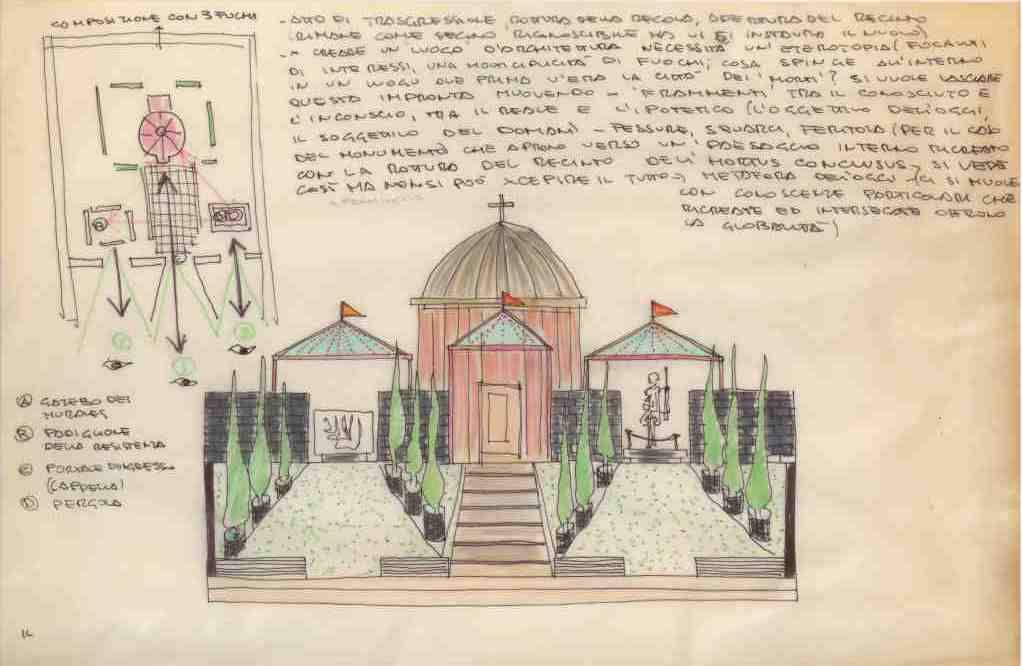 COMPOSIZIONE CON 3 FUOCHI
- ATTO DI TRASGRESSIONE ROTTURA DELLA REGOLA, APERTURA DEL RECINTO
(RIMANE COME SEGNO RICONOSCIBILE MA VI SI INSTAURA IL NUOVO)
- CREARE UN LUOGO D'ARCHITETTURA NECESSITA UN'ETEROTOPIA (FUOCHI
DI INTERESSI, UNA MOLTEPLICITÀ DI FUOCHI; COSA SPINGE ALL'INTERNO
IN UN LUOGO OVE PRIMA V'ERA LA CITTÀ DEI 'MORTI'? SI VUOLE LASCIARE
QUESTA IMPRONTA MUOVENDO - 'FRAMMENTI' TRA IL CONOSCIUTO E
L'INCONSCIO, TRA IL REALE E L'IPOTETICO (L'OGGETTIVO DELL'OGGI,
IL SOGGETTIVO DEL DOMANI) - FESSURE, SQUARCI, FERITOIA (PER IL CASO
DEL MONUMENTO) CHE APRONO VERSO UN 'PAESAGGIO INTERNO RICREATO
CON LA ROTTURA DEL RECINTO DELL'HORTUS CONCLUSUS, SI VEDE
COSÌ MA NON SI PUÒ IL TUTTO, METAFORA DELL'OGGI (CI SI MUOVE
CON CONOSCENZE PARTICOLARI CHE
RICREATE ED INTERSECATE OFFRONO
LA GLOBALITÀ)
A GAZEBO DEI
MURALES
B PADIGLIONE
DELLA RESISTENZA
C PORTALE D'INGRESSO
(CAPPELLA)
D PERGOLA